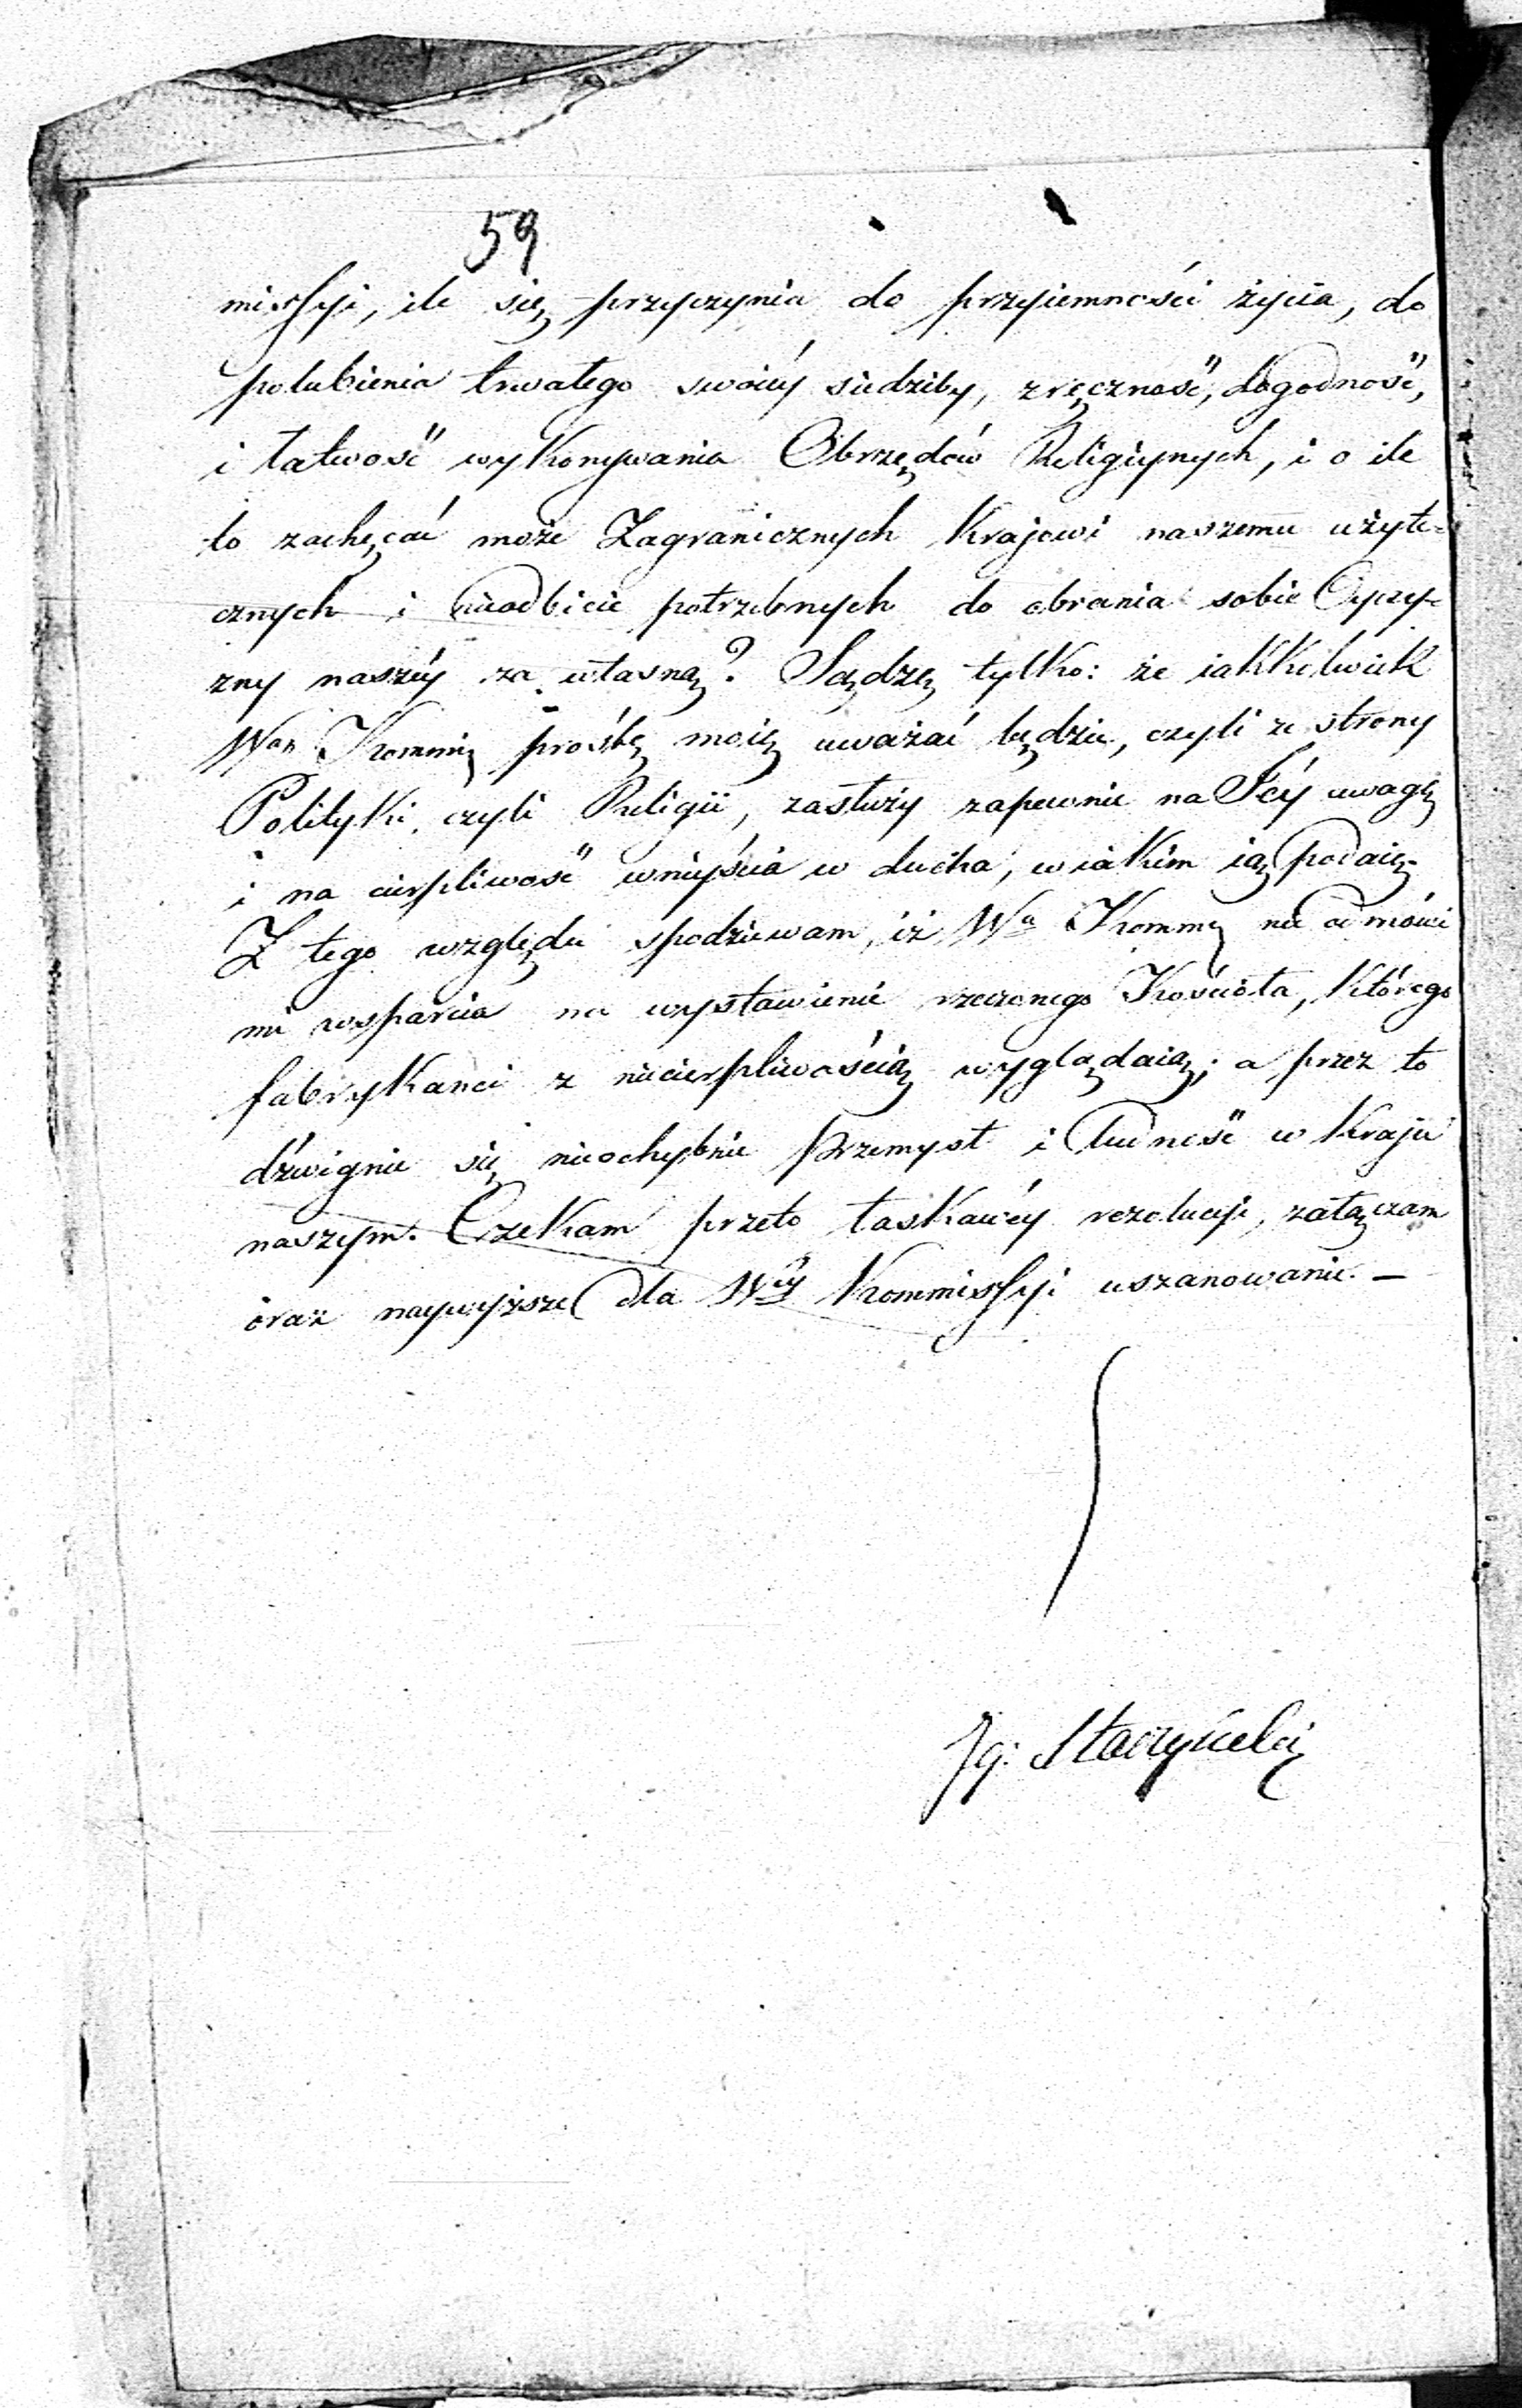 59
missyi, ile się przyczynia do przyiemności życia, do
polubienia trwałego swoiéy siedziby, zręczność, dogodność,
i łatwość wykonywania Obrzędów Religiynych, i o ile
to zachęcać może Zagranicznych Krajowi naszemu użyte-
cznych i nieodbicie potrzebnych do obrania sobie Oyczy-
zny naszéy za własną? Sądzę tylko: że iakkolwiek
Wan Kommię proźbę moię uważać będzie, czyli ze strony
Polityki, czyli Religii, zasłuży zapewnie na Jéy uwagę
i na cierpliwość wniyścia w ducha, w iakim ią podaię.
Z tego względu spodziewam, iż Wa Kommy nie odmówi
mi wsparcia na wystawienie rzeczonego Kościoła, którego
fabrykanci z niecierpliwością wyglądaią; a przez to
dźwignie się nieochybnie przemysł i ludność w Kraju
naszym. Czekam przeto łaskawéy rezolucyi, załączam
oraz naywyższe dla Wéy Kommissyi uszanowanie. —
Ig: Starzyński